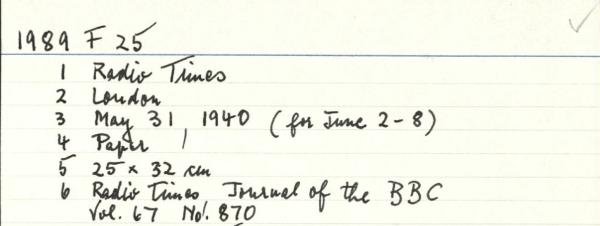 1989 F 25
1 Radio Times
2 London
3 May 31, 1940 (for June 2-8)
4 Paper
5 25 x 32 cm
6 Radio Times Journal of the BBC
Vol. 67 No. 870